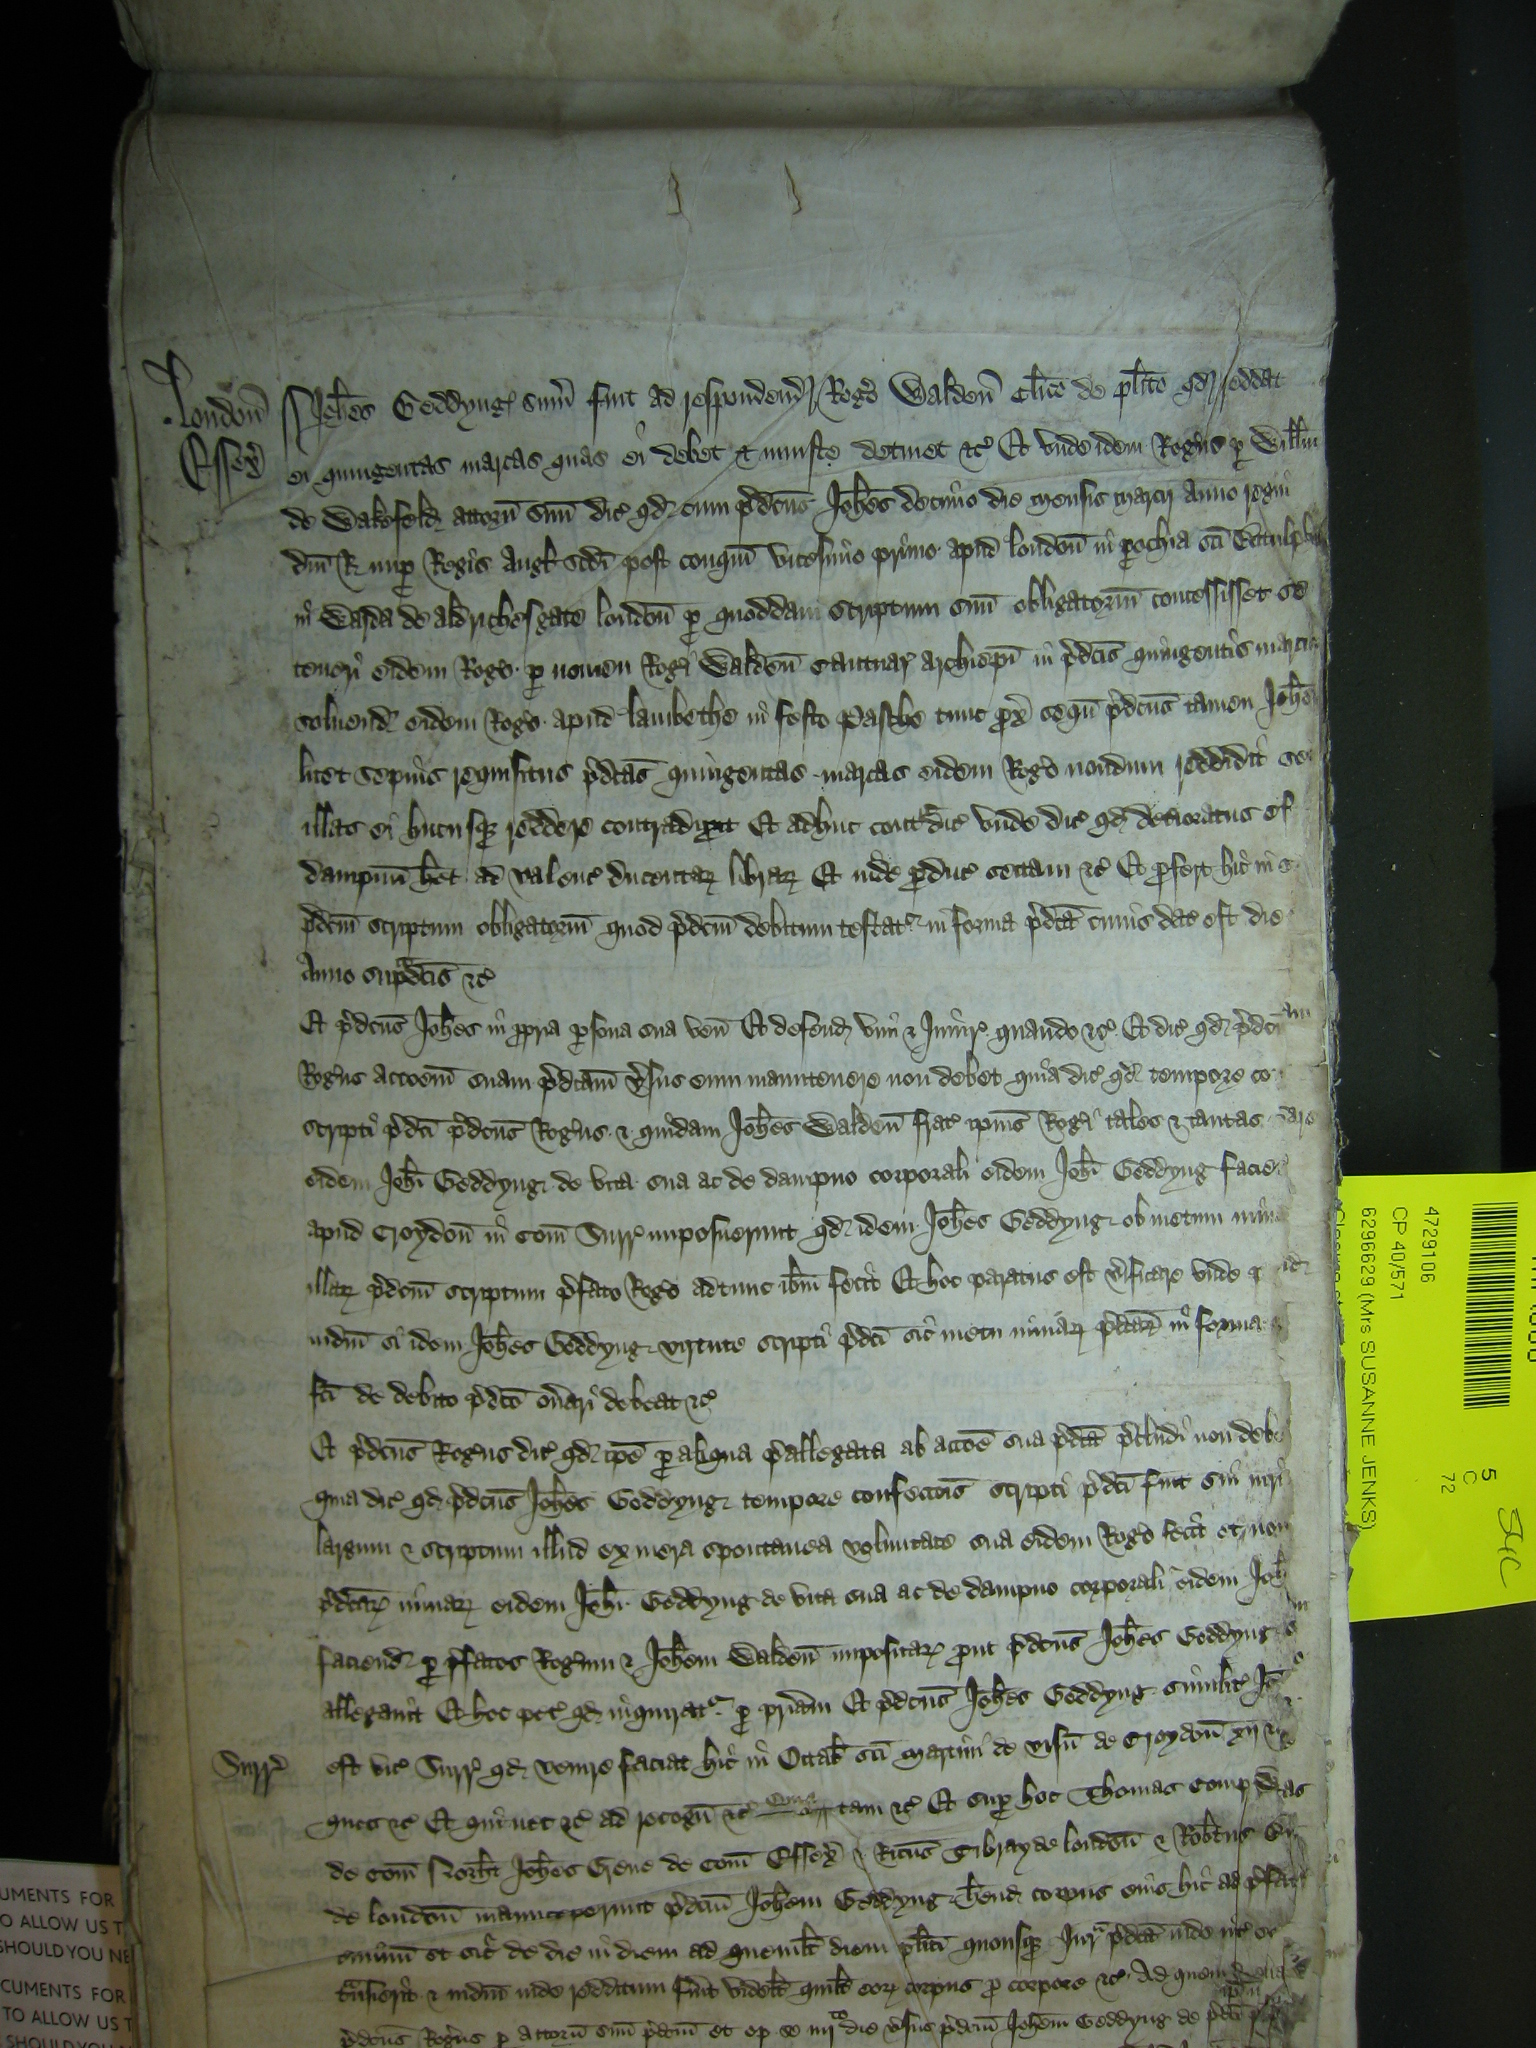 London Joh̅es Geddyng sum̅ fuit ad respondend Rog̅o Walden̅ cl̅ico de pl̅ito qd reddat
Essex̅ ei quingentas marcas quas ei debet & iniuste detinet &c Et unde idem Rog̅us p Will̅m
de Wakefeld attorn̅ suu̅ dic̅ qd cum p̅dc̅us Joh̅es decimo die mensis marcii Anno regni
dn̅i R nup Regis Angl̅ scd̅i post conqu̅ vicesimo primo apud london̅ in p̅ochia sc̅i Botulphi
in Warda de aldrichesgate london̅ p quoddam scriptum suu̅ obligatoriu̅ concessisset se
teneri eidem Rog̅o p nomen Rog̅i Walden̅ Cantuar̅ archiep̅i in p̅dc̅is quingentis marcis
soluend̅ eidem Rog̅o apud lambethe in festo Pasche tunc prox̅ sequ̅ p̅dc̅us tamen Joh̅es
licet sepius requisitus p̅dc̅as quingentas marcas eidem Rog̅o nondum reddidit se
illas ei hucusq reddere contradixit Et adhuc cont̅dic̅ unde dic̅ qd deterioratus es
dampnu̅ h̅et ad valenc̅ ducentar̅ librar̅ Et inde p̅duc̅ sectam &c Et p̅fert hic in
p̅dc̅m scriptum obligatoriu̅ quod p̅dc̅m debitum testat̅ in forma p̅dc̅a cuius dat̅ est die
Anno sup̅dc̅is &c
Et p̅dc̅us Joh̅es in p̅pria p̅sona sua ven̅ Et defend̅ vim & Iniur̅ quando &c Et dic̅ qd p̅dc̅us
Rog̅us acc̅oem̅ suam p̅dc̅am v̅sus eum manutenere non debet quia dic̅ qd tempore co
scripti p̅dc̅i p̅dc̅us Rog̅us & quidam Joh̅es Walden̅ frat̅ ip̅ius Rog̅i tales & tantas
eidem Joh̅i Geddyng de vita sua ac de dampno corporali eidem Joh̅i Geddyng facien
apud Croydon̅ in Com̅ Surr̅ imposuerunt qd idem Joh̅es Geddyng ob metum mina
illar̅ p̅dc̅m scriptum p̅fato Rog̅o adtunc ib̅m fecit Et hoc paratus est v̅ificare unde
iudm̅ si idem Joh̅es Geddyng virtute scripti p̅dc̅i sic metu minar̅ p̅dc̅ar̅ in forma
fc̅i de debito p̅dc̅o on̅ari debeat &c
Et p̅dc̅us Rog̅us dic̅ qd ip̅e p aliqua p̅allegata ab acc̅oe sua p̅dc̅a p̅cludi non deb
quia dic̅ qd p̅dc̅us Joh̅es Geddyng tempore confecc̅ois scripti p̅dc̅i fuit sui iuri
largum & scriptum illud ex mera spontanea voluntate sua eidem Rog̅o fecit et non
p̅dc̅ar̅ minar̅ eidem Joh̅i Geddyng de vita sua ac de dampno corporali eidem Joh
faciend̅ p p̅fatos Rog̅um & Joh̅em Walden̅ impositar̅ prout p̅dc̅us Joh̅es Geddyng
allegauit Et hoc pet̅ qd inquirat̅ p pat̅am Et p̅dc̅us Joh̅es Geddyng similit̅
Surr̅ est vic̅ Surr̅ qd venire faciat hic in Octab̅ sc̅i martini de visu̅ de Croydon̅ xii
ques &c Et qui nec &c ad recogn̅ &c Quia tam &c Et sup hoc Thomas
de Com̅ Joh̅es Grene de Com̅ Essex̅ Ric̅us de london̅ & Rob̅tus
de london̅ manuceperunt p̅dc̅m Joh̅em Geddyng h̅end̅ corpus eius hic ad p̅fat
t̅minu̅ et sic de die in diem ad quemlt̅ diem pl̅iti quousq Jur̅ p̅dc̅a inde int̅ eo
t̅nsierit & iudm̅ inde redditum fuit videlt̅ quilt̅ eor̅ corpus p corpore &c Ad quem
p̅dc̅us Rog̅us p attorn̅ suu̅ p̅dc̅m et op se iiii̅ die v̅sus p̅dc̅m Joh̅em Geddyng de
4729106
CP 40/571
6296629 (Mrs SUSANNE JENKS)
5
C
72
UMENTS FOR
O ALLOW US T
SHOULD YOU NE
CUMENTS FOR
TO ALLOW US T
SHOULD YOU